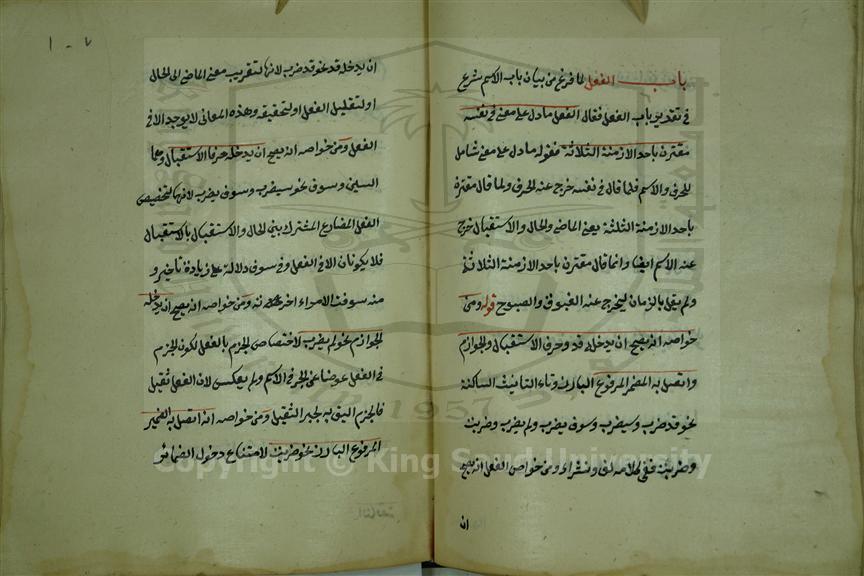 باب الفعل لما فرغ من بيان باب الاسم شرع
في تقدير باب الفعل فقال الفعل ما دل على معنى في نفسه
مقترن باحد الازمنة الثلاثة فقوله ما دل على معنى شامل
للحرف والاسم فلما قال في نفسه خرج عنه الحرف ولما قال مقترنة
باحد الازمنة الثلثة يعني الماضي والحال والاستقبال خرج
عنه الاسم ايضا وانما قال مقترن باحد الازمنة الثلاثة
ولم يقل بالزمان ليخرج عنه الغبوق والصبوح قوله ومن
خواصه انه يصح ان يدخله قد وحرف الاستقبال والجوازم
واتصل به المضمر المرفوع البارز وتاء التانيث الساكنة
نحو قد ضرب وسيضرب وسوف يضرب ولم يضرب وضربت
وضربت ففي كلامه لف ونشر اء ومن خواص الفعل انه يصح
ان
٧ - ١
ان يدخله قد نحو قد ضرب لانها لتقريب معنى الماضي الى الحال
او لتقليل الفعل او لتحقيقه وهذه المعاني لا يوجد الا في
الفعل ومن خواصه انه يصح ان يدخله حرفا الاستقبال وهما
السين وسوف نحو سيضرب وسوف يضرب لانهما لتخصيص
الفعل المضارع المشترك بين الحال والاستقبال بالاستقبال
فلا يكونان الا في الفعل وفي سوف دلالة على زيادة تاخير و
منه سوفت الامر اء اخرته ومن خواصه انه يصح ان يدخله
الجوازم نحو لم يضرب لاختصاص الجزم بالفعل لكون الجزم
في الفعل عوضا عن الجر في الاسم ولم يعكس لان الفعل ثقيل
فالجزم اليق به لجبر الثقيل ومن خواصه انه اتصل به الضمير
المرفوع البارز نحو ضربت لامتناع دخول الضمائر
Copyright © King Saud University
1957